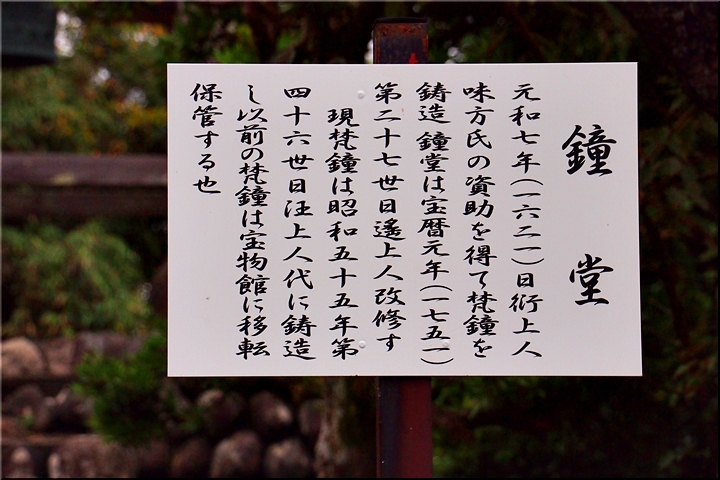 鐘堂
元和七年(一六二一)日衍上人
味方氏の資助を得て梵鐘を
鋳造 鐘堂は宝暦元年(一七五一)
第二十七世日遙上人改修す
現梵鐘は昭和五十五年第
四十六世日汪上人代に鋳造
し以前の梵鐘は宝物館に移転
保管する也